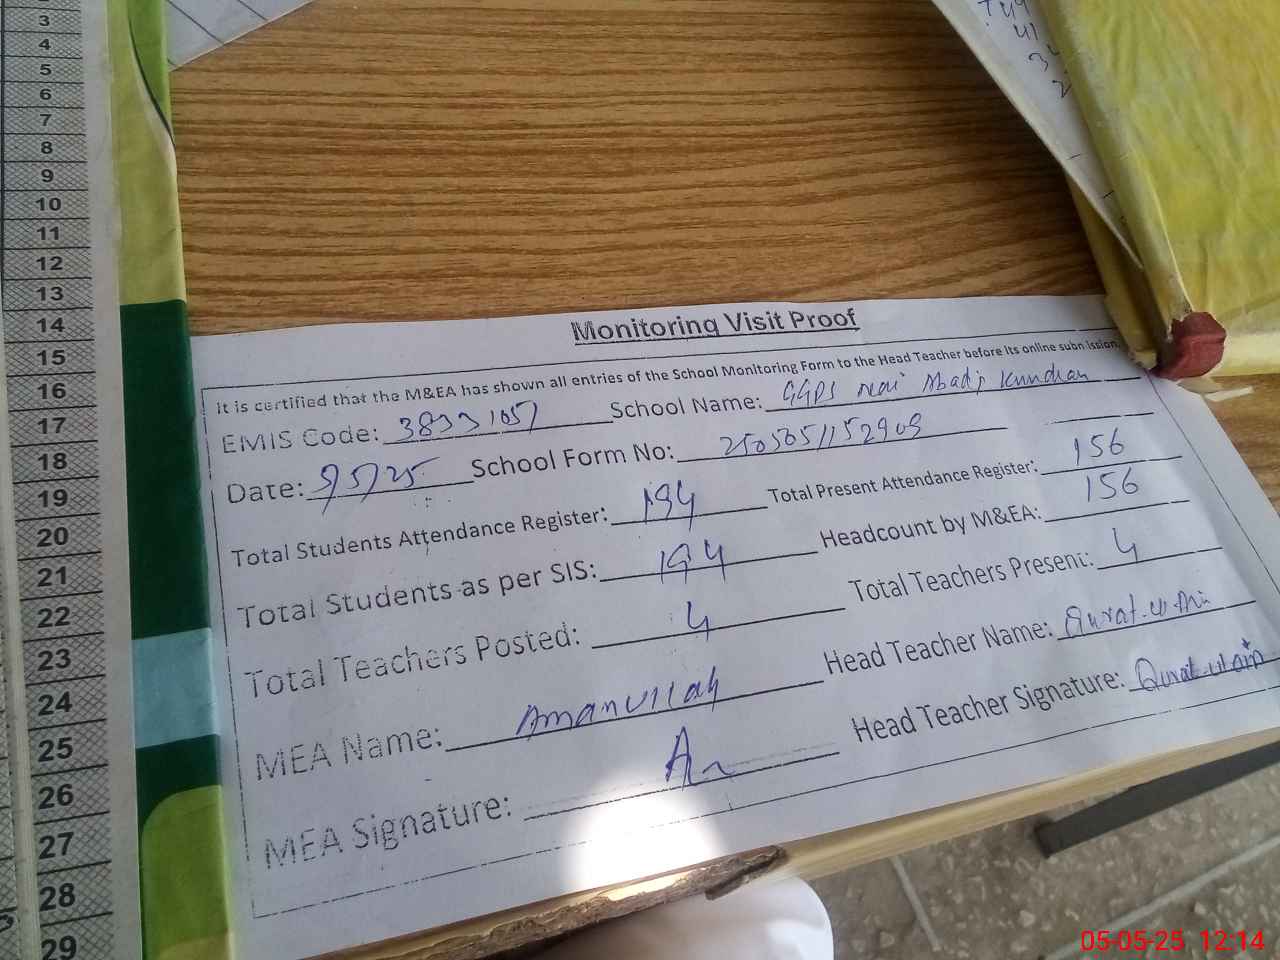 3
4
5
6
7
8
9
10
11
12
13
14
15
16
17
18
19
20
21
22
23
24
25
26
27
28
29
Monitoring Visit Proof
It is certified that the M&EA has shown all entries of the School Monitoring Form to the Head Teacher before its online submission.
EMIS Code: 38331057 School Name: GGPS Nai Abadi Kundian
Date: 5/5/25 School Form No: 2505051152903
Total Students Attendance Register: 194 Total Present Attendance Register: 156
Total Students as per SIS: 194 Headcount by M&EA: 156
Total Teachers Posted: 4 Total Teachers Present: 4
MEA Name: Amanullah Head Teacher Name: Qurat-ul-Ain
MEA Signature: Head Teacher Signature: Qurat-ul-ain
05-05-25 12:14